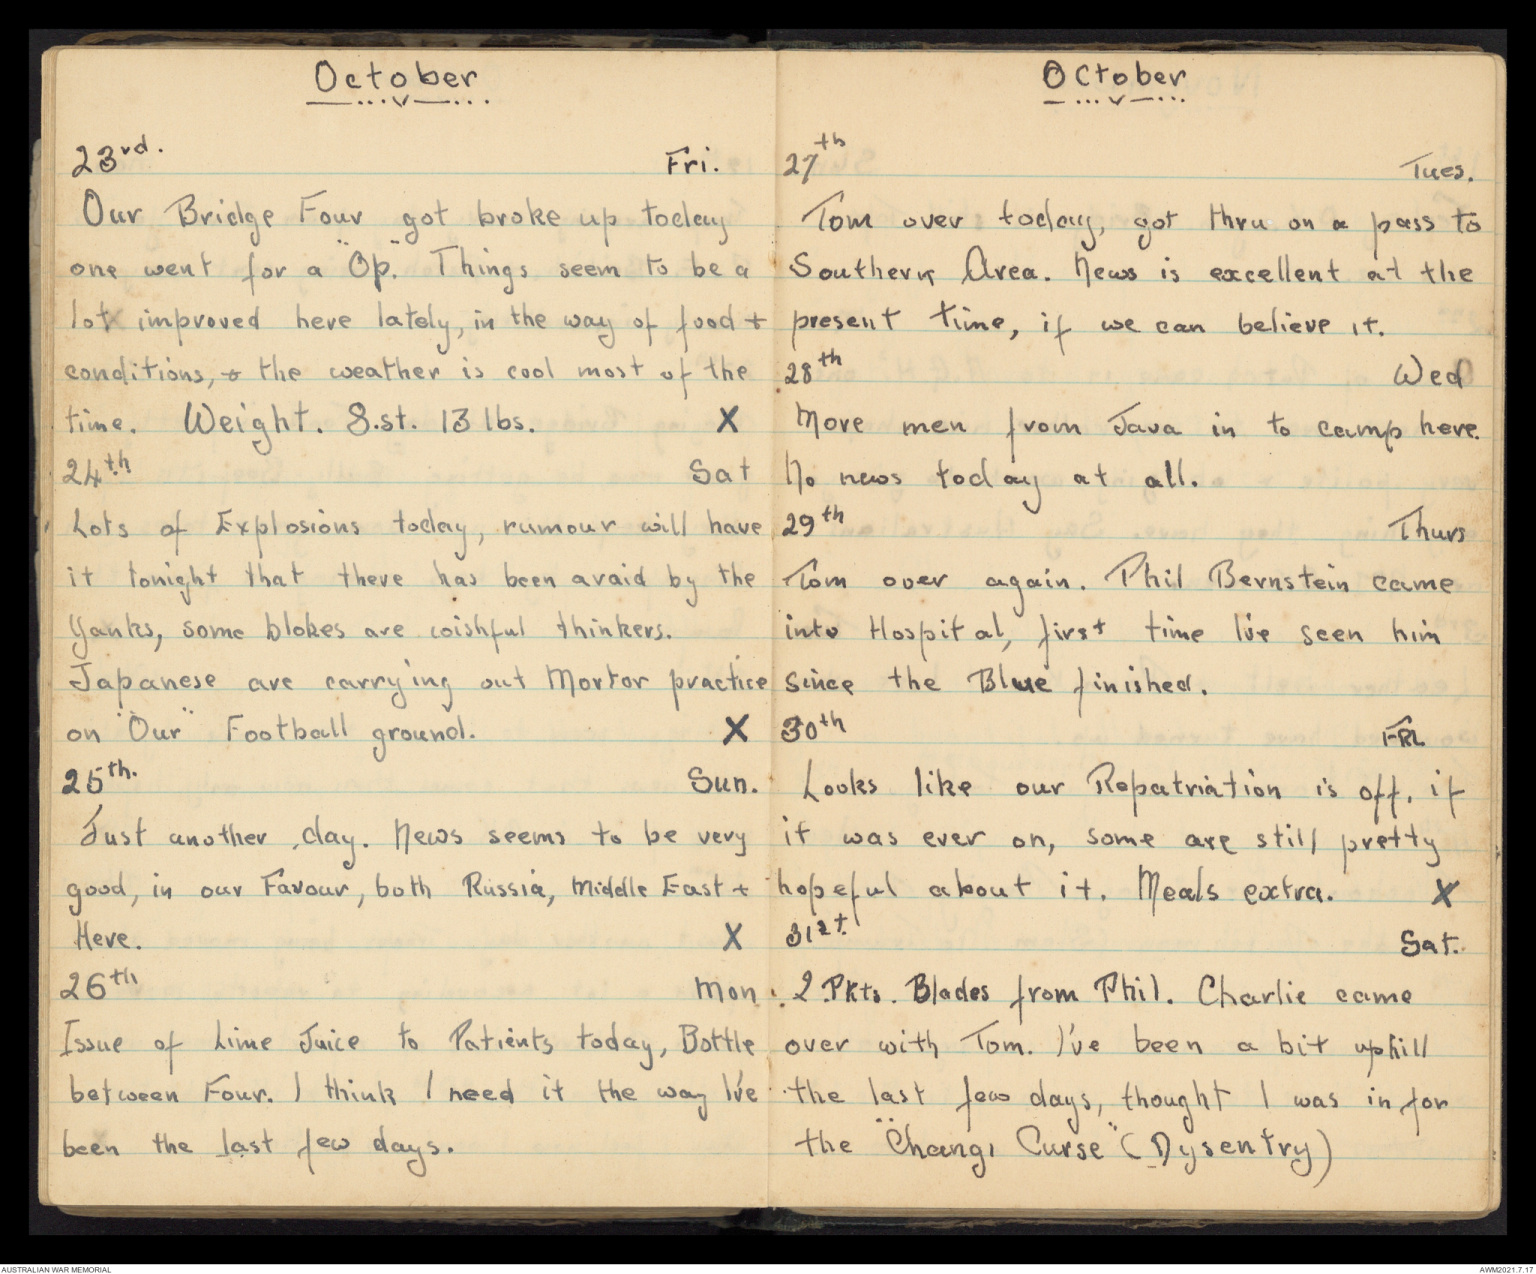 October
23rd. Fri.
Our Bridge Four got broke up today
one went for a "Op". Things seem to be a
lot improved here lately, in the way of food +
conditions, + the weather is cool most of the
time. Weight. 8.st. 13 lbs. X
24th Sat
Lots of Explosions today, rumour will have
it tonight that there has been a raid by the
Yanks, some blokes are wishful thinkers.
Japanese are carrying out Mortor practice
on "Our" Football ground. X
25th. Sun.
Just another day. News seems to be very
good, in our Favour, both Russia, Middle East +
Here. X
26th Mon.
Issue of Lime Juice to Patients today, Bottle
between Four. I think I need it the way I've
been the last few days.
October
27th Tues.
Tom over today, got thru on a pass to
Southern Area. News is excellent at the
present time, if we can believe it.
28th Wed
More men from Java in to camp here.
No news today at all.
29th Thurs
Tom over again. Phil Bernstein came
into Hospital, first time I've seen him
since the Blue finished.
30th FRI.
Looks like our Repatriation is off, if
it was ever on, some are still pretty
hopeful about it. Meals extra. X
31st. Sat.
2 Pkts. Blades from Phil. Charlie came
over with Tom. I've been a bit uphill
the last few days, thought I was in for
the "Changi Curse" (Dysentry)
AUSTRALIAN WAR MEMORIAL
AWM2021.7.17